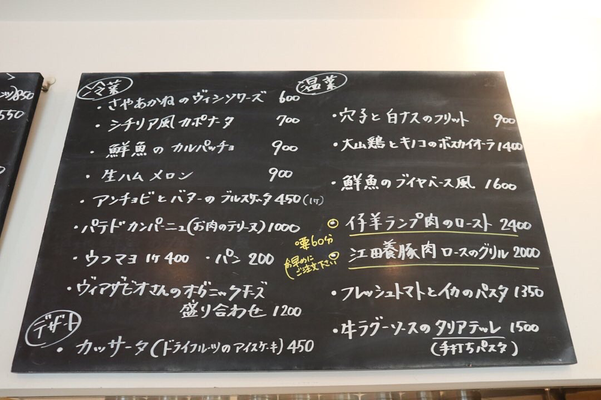 850
550
冷菜
・さやあかねのヴィシソワーズ 600
・シチリア風カポナータ 700
・鮮魚のカルパッチョ 900
・生ハムメロン 900
・アンチョビとバターのブルスケッタ 450(1ケ)
・パテドカンパーニュ(お肉のテリーヌ) 1000
・ウフマヨ 1ケ 400 ・パン 200
・ヴィアザビオさんのオーガニックチーズ
盛り合わせ 1200
デザート
・カッサータ(ドライフルーツのアイスケーキ) 450
温菜
・穴子と白ナスのフリット 900
・大山鶏とキノコのボスカイオーラ 1400
・鮮魚のブイヤベース風 1600
仔羊ランプ肉のロースト 2400
要60分
お早めに
ご注文下さい
江田養豚肉ロースのグリル 2000
・フレッシュトマトとイカのパスタ 1350
・牛ラグーソースのタリアテッレ 1500
(手打ちパスタ)